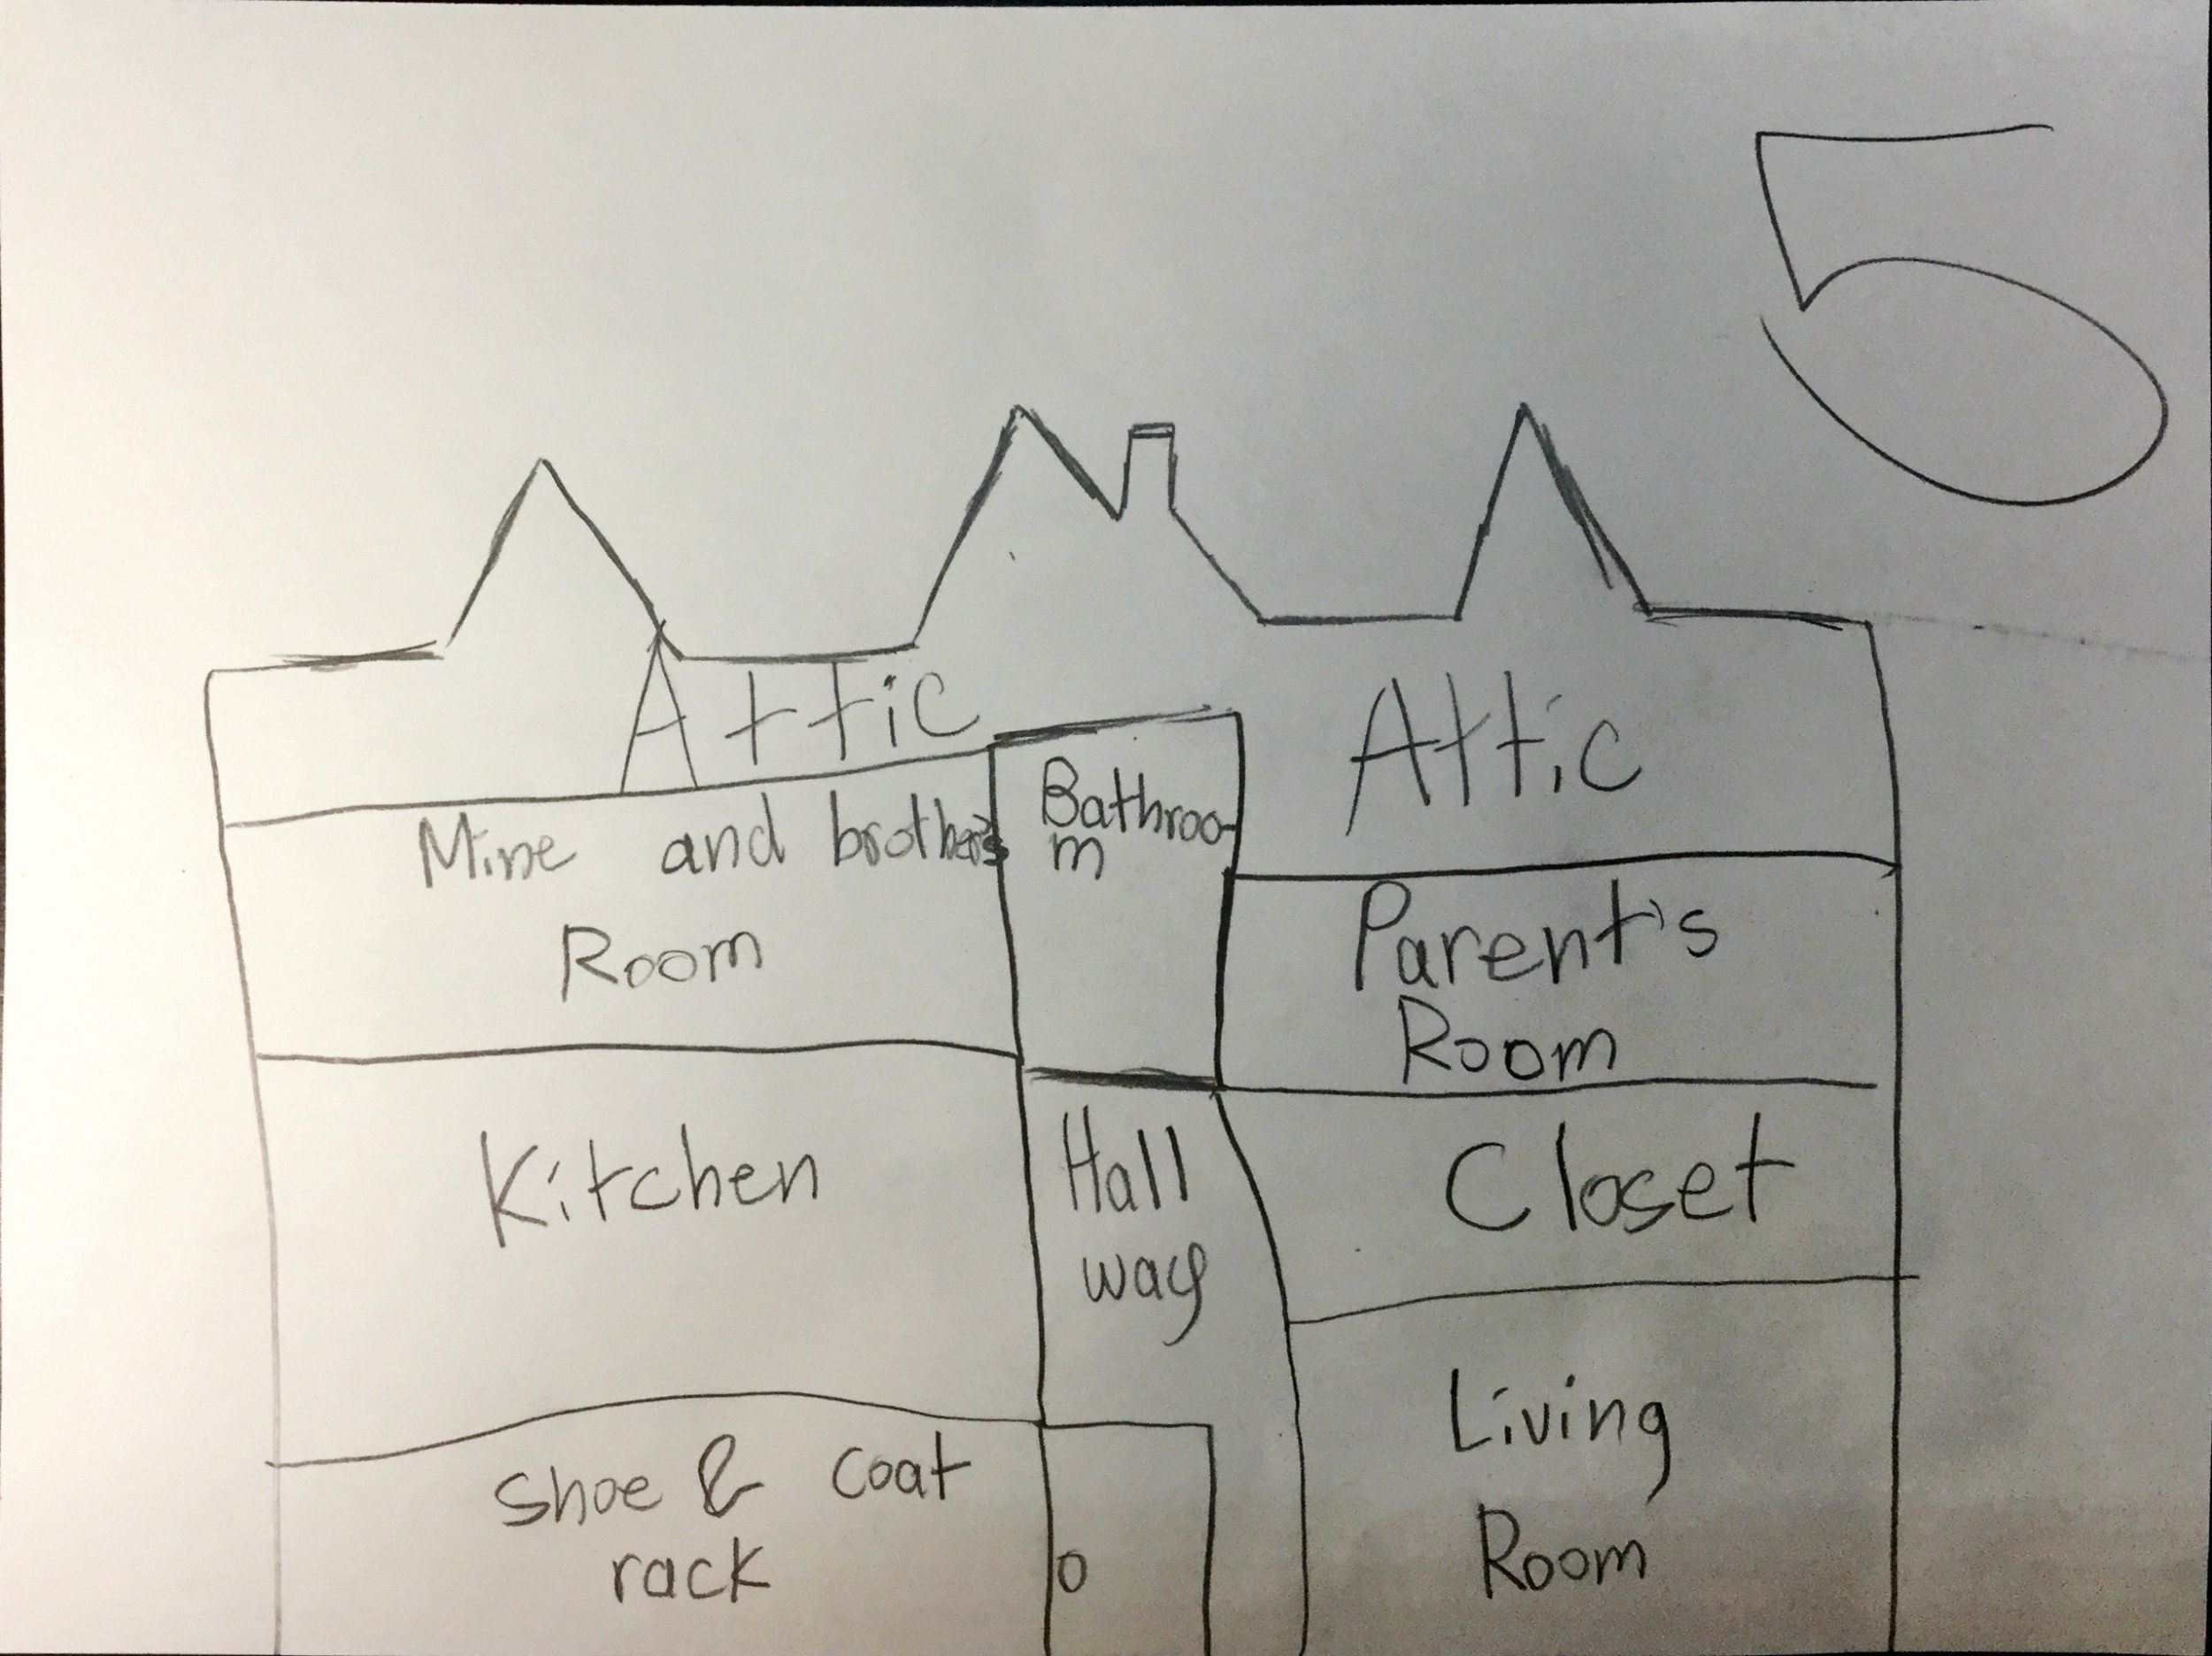 5
Attic
Attic
Mine and brother's
Room
Bathroo-
m
Parent's
Room
Kitchen
Hall
way
Closet
Shoe & coat
rack
Living
Room